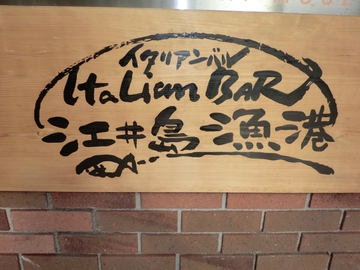 イタリアンバル
Italian BAR
江井島漁港